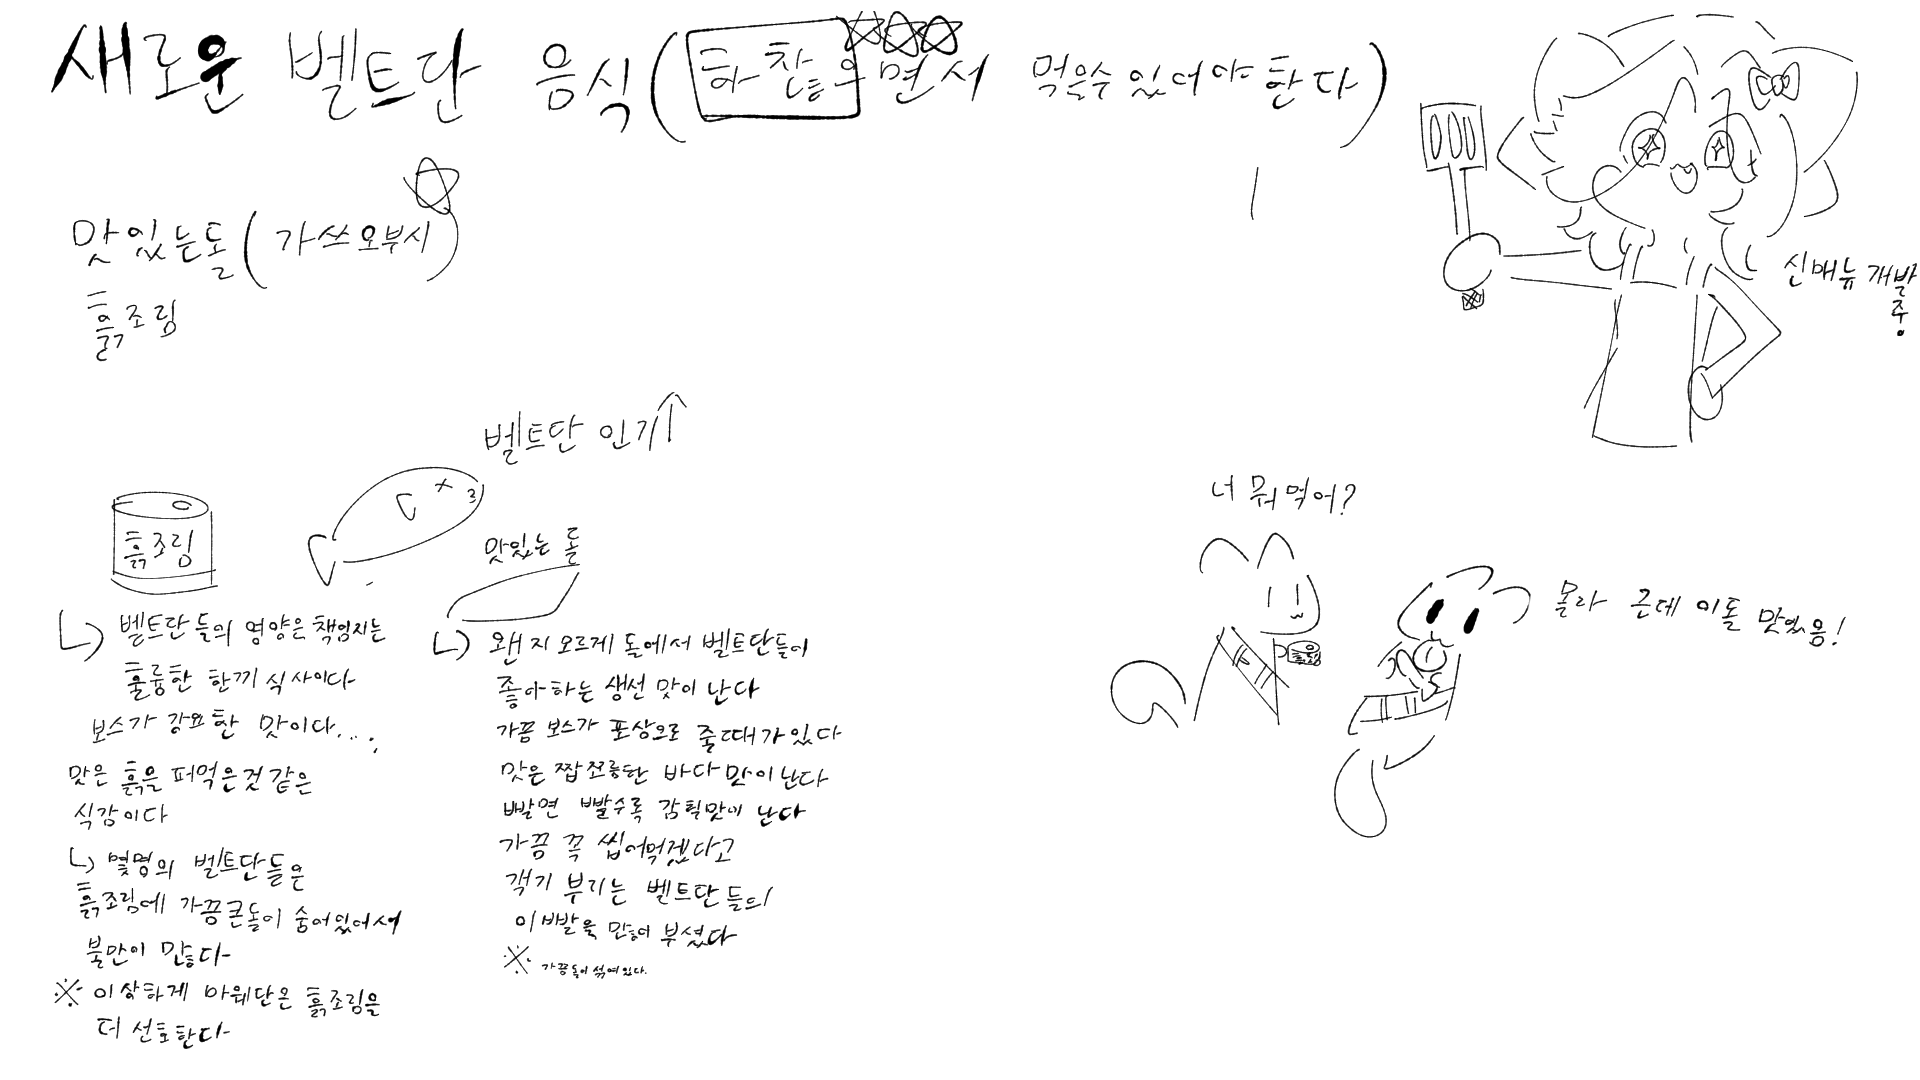 새로운 벨트단 음식(하찮으면서 먹을수 있어야 한다)
맛있는돌(가쓰오부시)
흙조림
신메뉴 개발중
벨트단 인기↑
흙조림
맛있는 돌
벨트단 들의 영양은 책임지는
훌륭한 한끼 식사이다
보스가 강요한 맛이다....
맛은 흙을 퍼먹은것 같은
식감이다
몇명의 벨트단들은
흙조림에 가끔큰돌이 숨어있어서
불만이 많다
※ 이상하게 마웨단은 흙조림을
더 선호한다
왠지모르게 돌에서 벨트단들이
좋아하는 생선 맛이 난다
가끔 보스가 포상으로 줄때가있다
맛은 짭쪼름한 바다맛이난다
빨면 빨수록 감칠맛이 난다
가끔 꼭 씹어먹겠다고
객기 부리는 벨트단들의
이빨을 많이 부셨다
※ 가끔돌이 섞여있다.
너 뭐먹어?
흙
몰라 근데 이돌 맛있음!